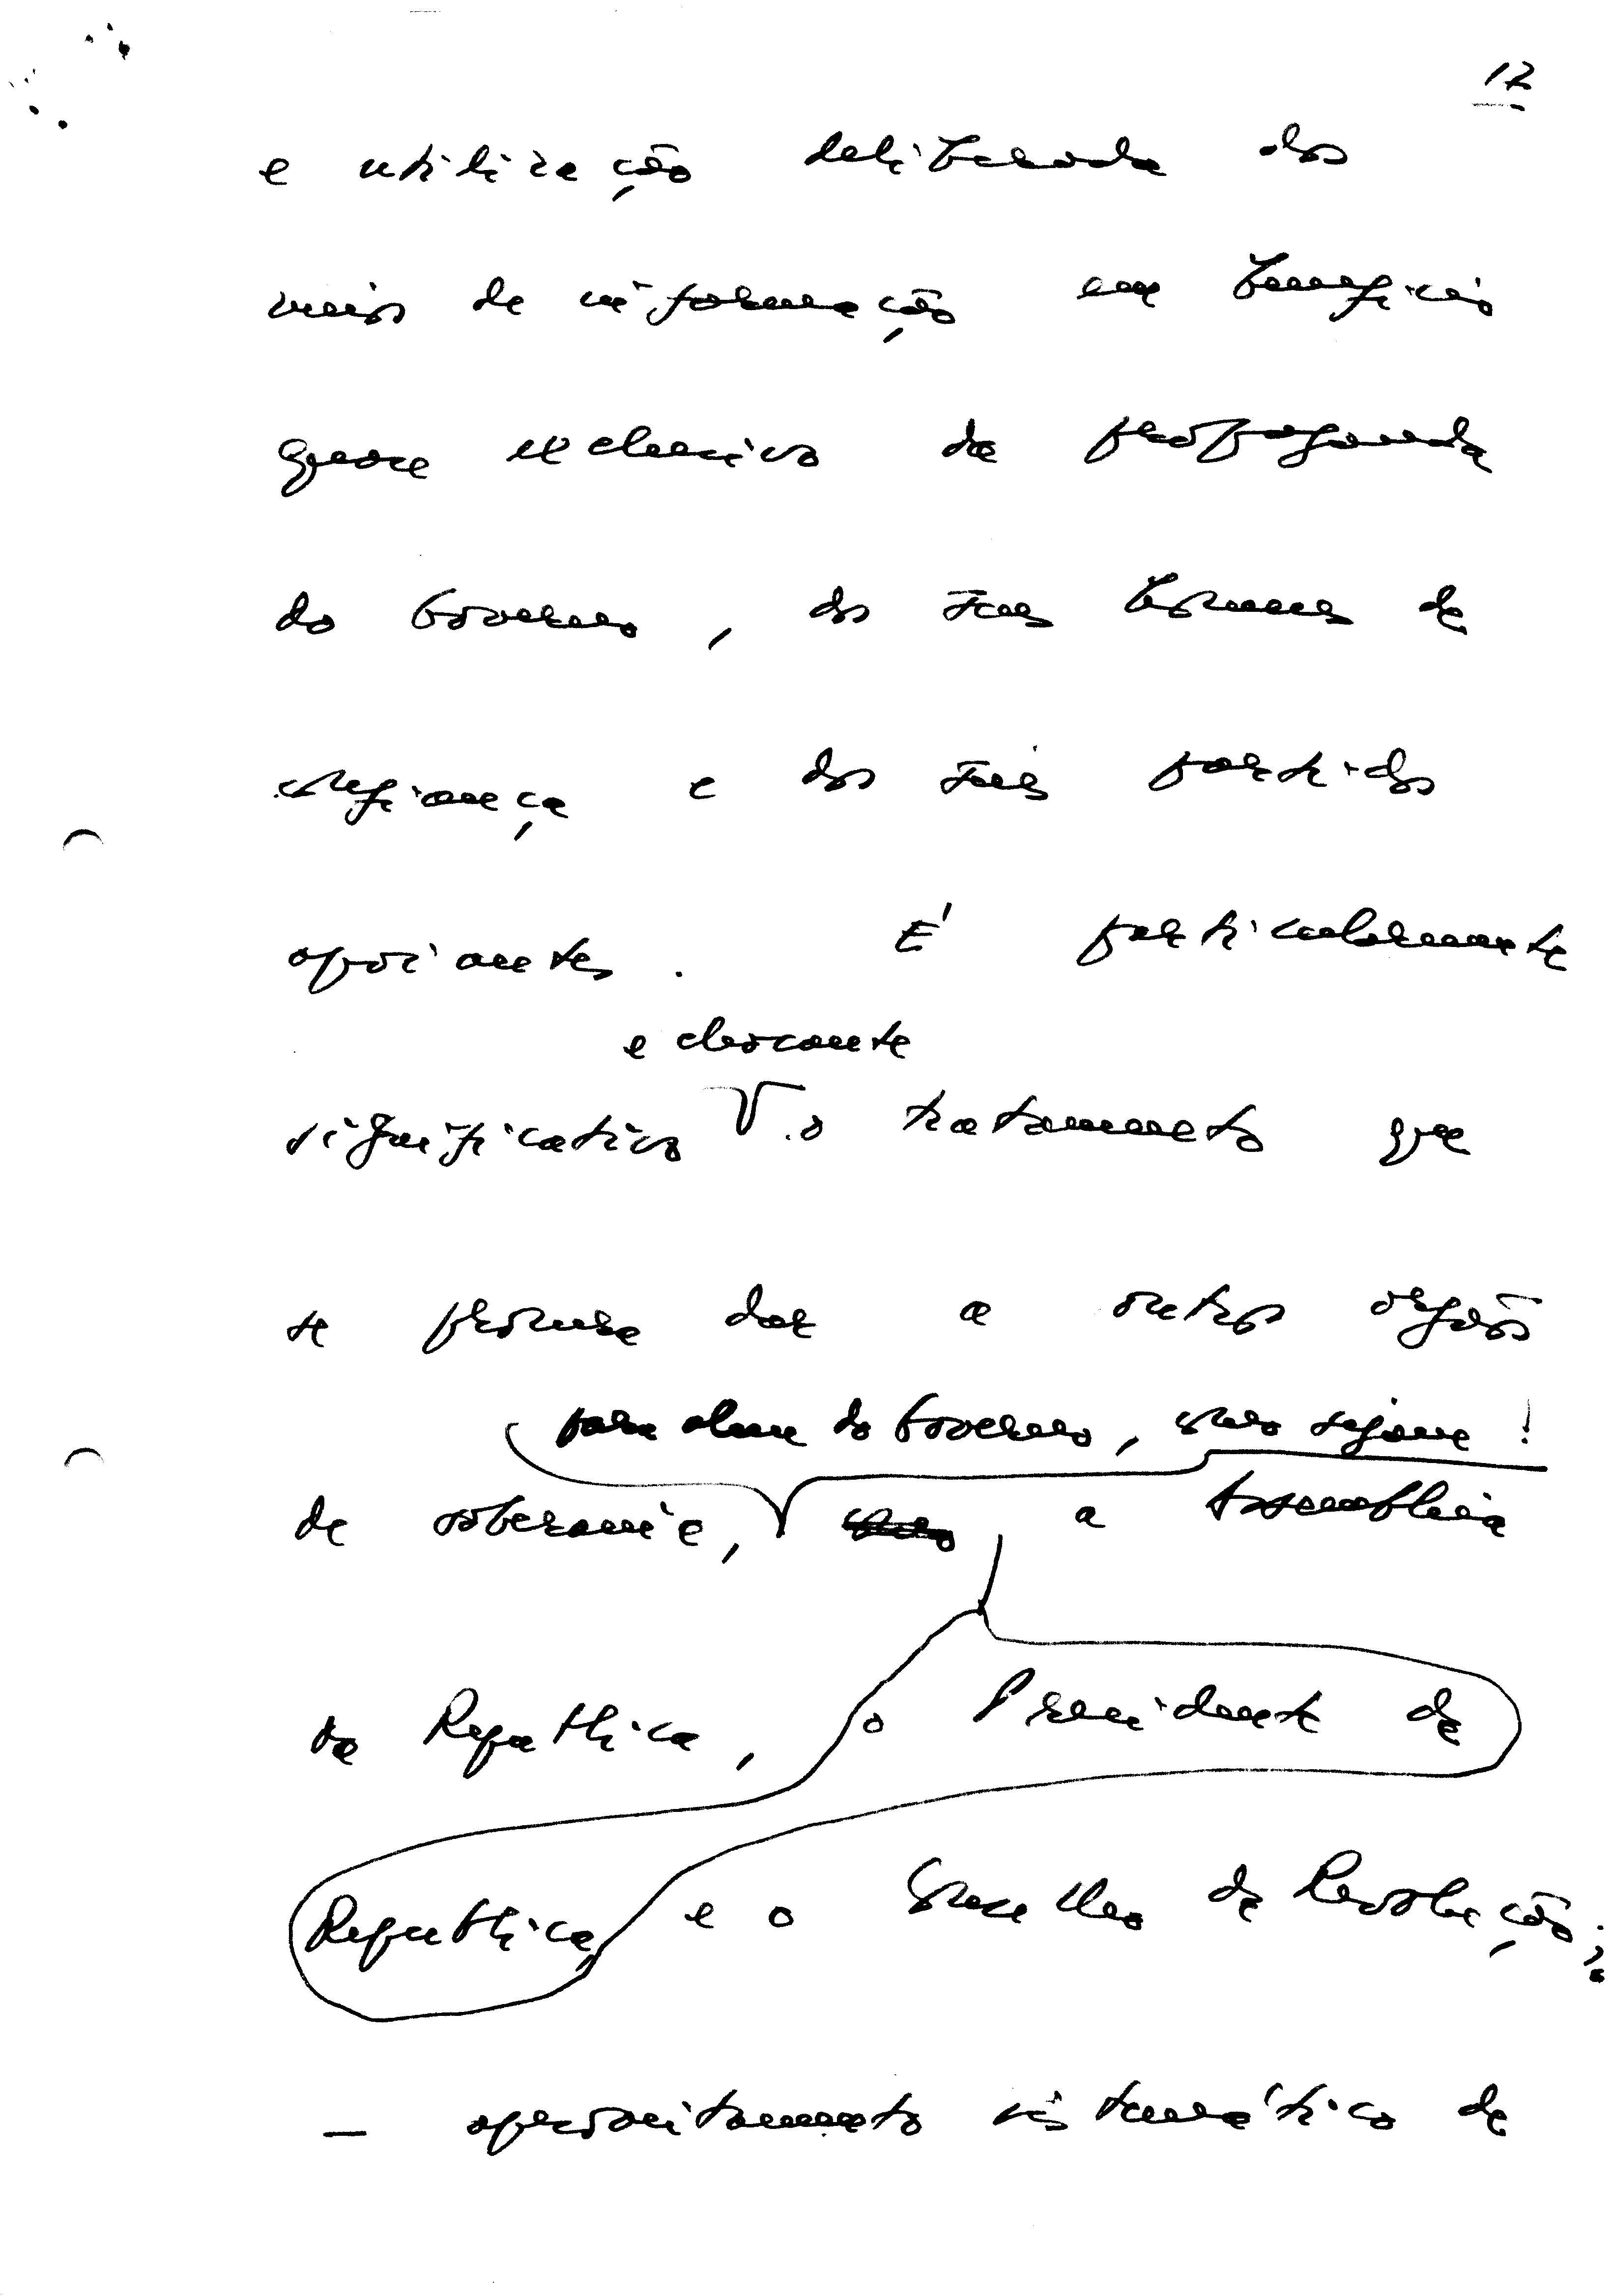 12
e utilização deliberada dos
meios de informação em beneficio
quase exclusivo da propaganda
do Governo, dos seus homens de
confiança e dos seus partidos
apoiantes. É particularmente
e chocante
significativo o tratamento que
se procura dar a outros orgãos
para alem do Governo, como sejam!
de soberania, como a Assembleia
da Republica, o Presidente da
Republica, e o Conselho da Revolução;
— aproveitamento sistemático de